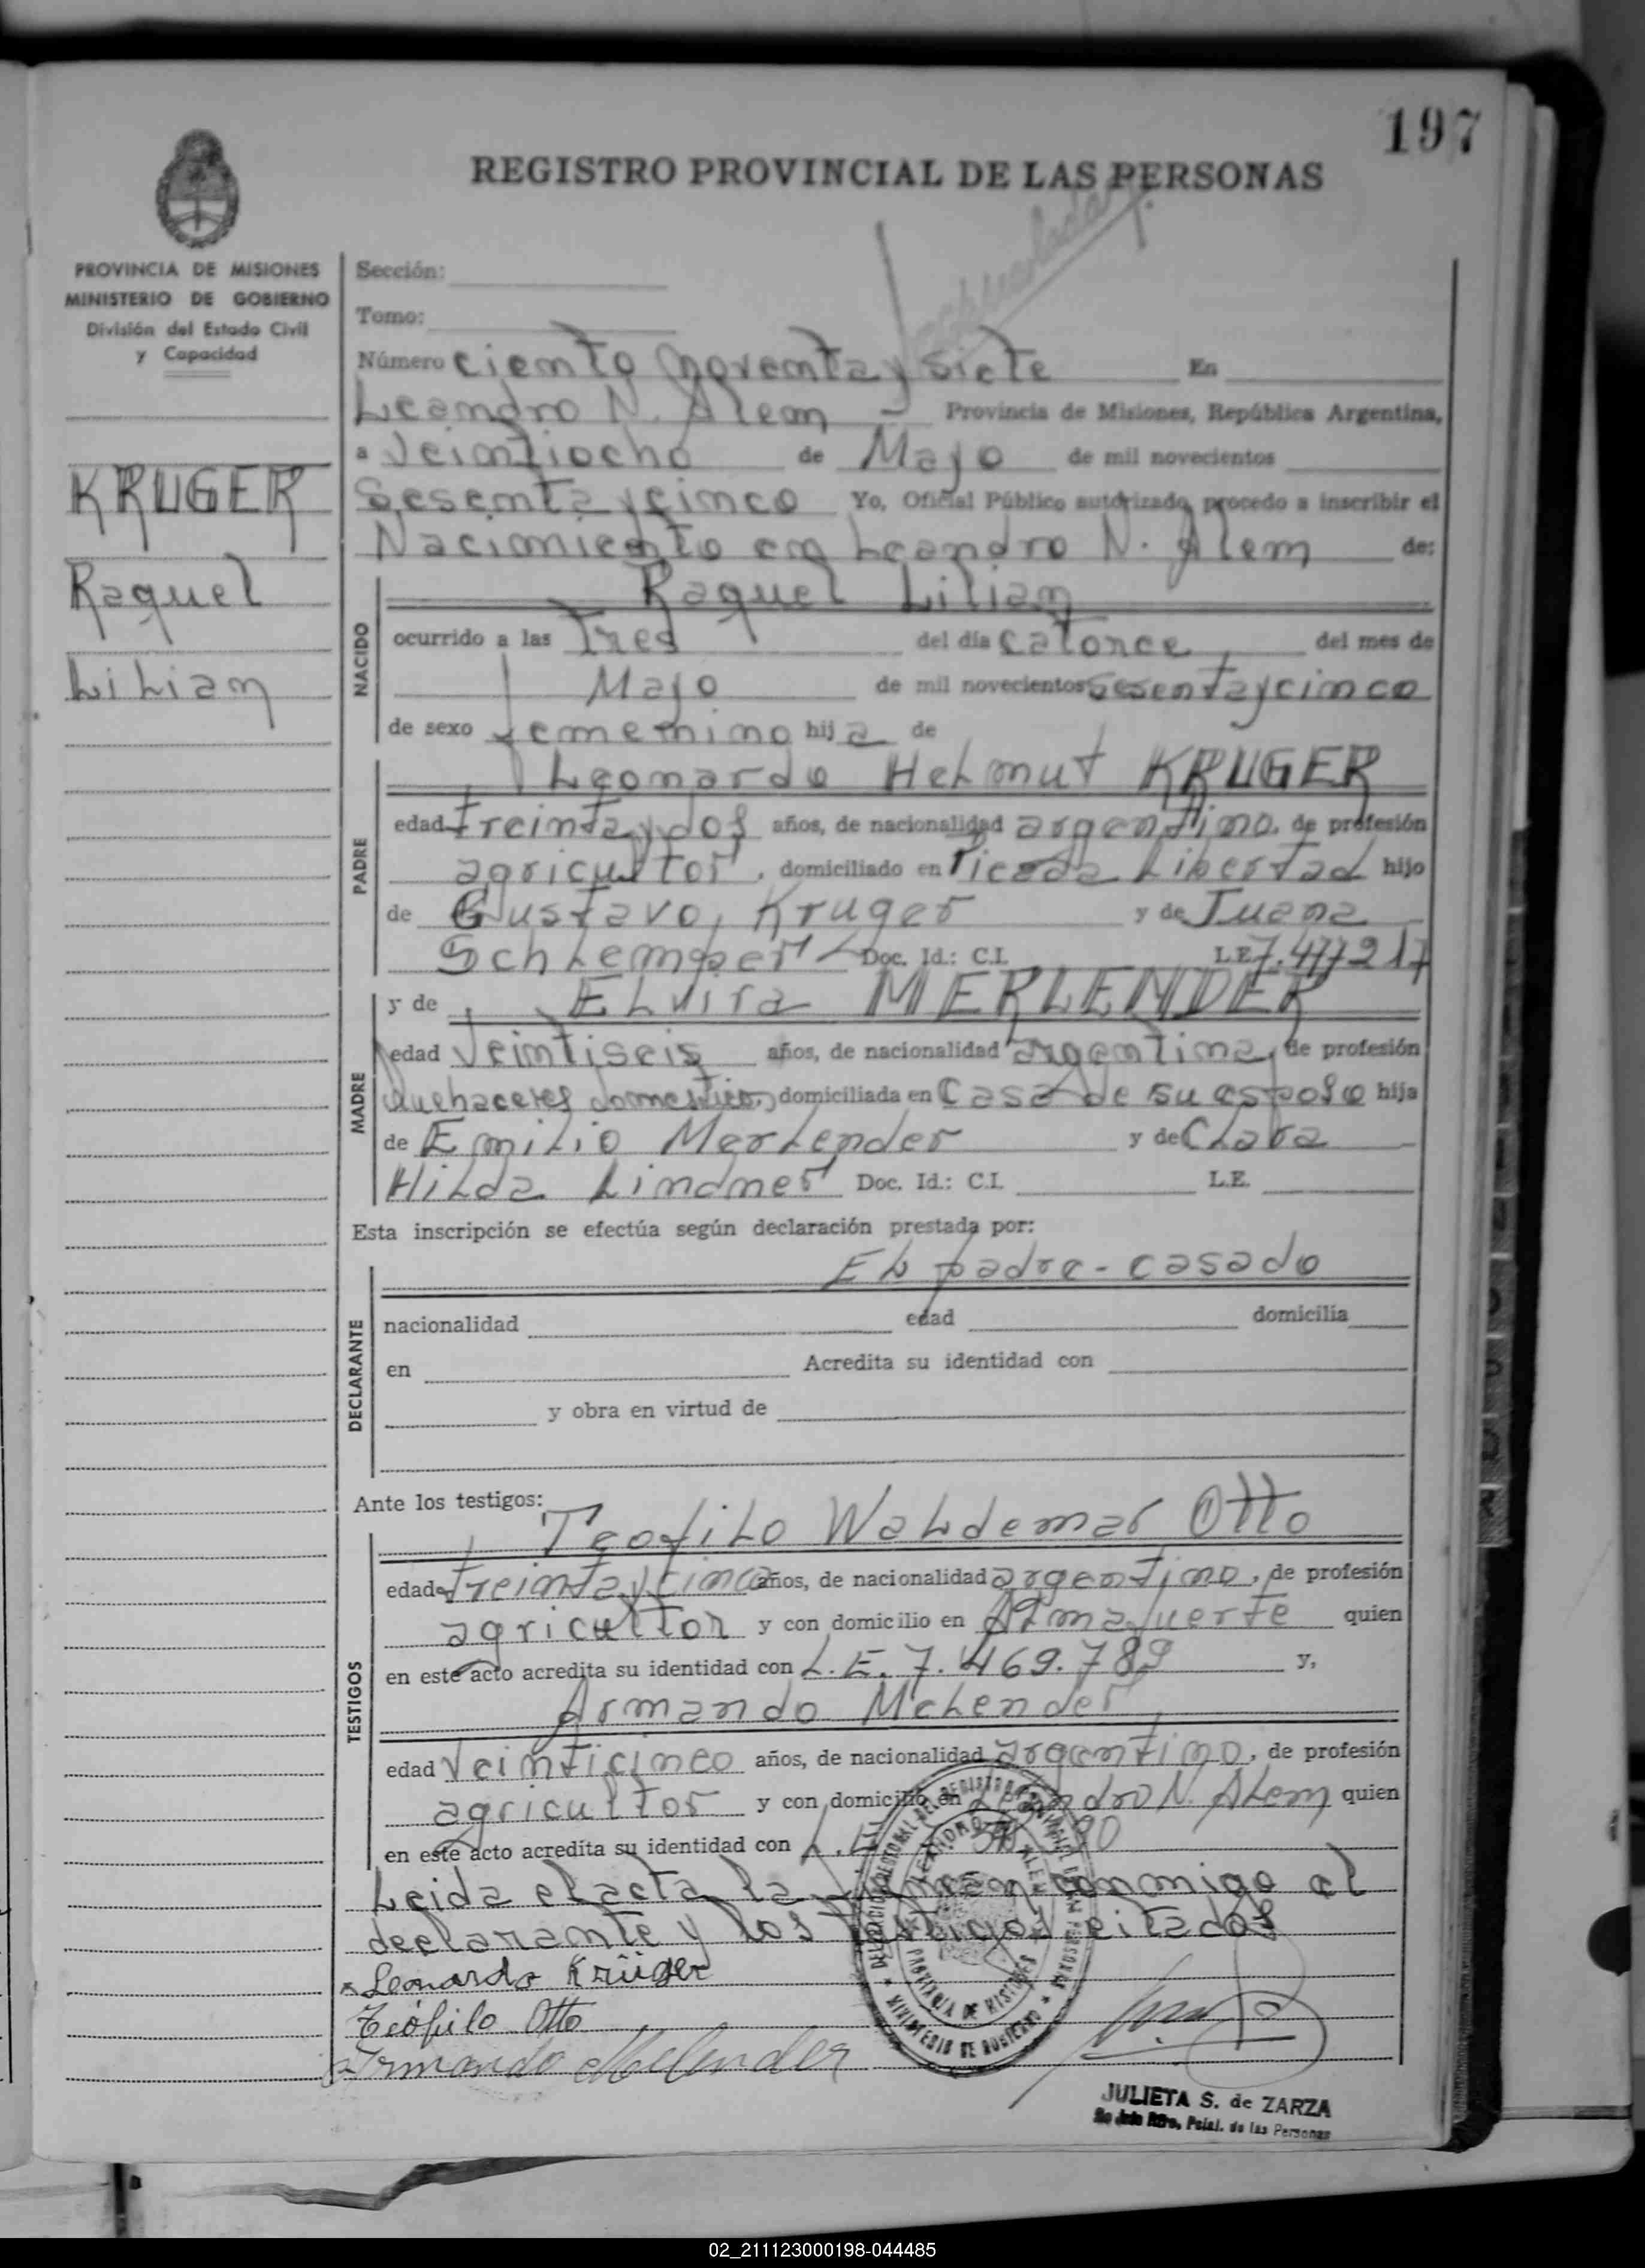 197
REGISTRO PROVINCIAL DE LAS PERSONAS
PROVINCIA DE MISIONES
MINISTERIO DE GOBIERNO
División del Estado Civil
y Capacidad
KRUGER
Raquel
Lilian
Sección:
Tomo:
Número ciento noventa y siete En
Leandro N. Alem - Provincia de Misiones, República Argentina,
a Veintiocho de Mayo de mil novecientos
Sesenta y cinco Yo, Oficial Público autorizado, procedo a inscribir el
Nacimiento en Leandro N. Alem de:
NACIDO
Raquel Lilian
ocurrido a las Tres del día catorce del mes de
Mayo de mil novecientos sesenta y cinco
de sexo femenino hija de
PADRE
Leonardo Helmut KRUGER
edad treinta y dos años, de nacionalidad argentino, de profesión
agricultor, domiciliado en Picada Libertad hijo
de Gustavo, Kruger y de Juana
Schlemper Doc. Id.: C.I. L.E. 7.477217
MADRE
y de Elvira MERLENDER
edad Veintiseis años, de nacionalidad argentina, de profesión
Quehaceres domesticos, domiciliada en Casa de su esposo hija
de Emilio Merlender y de Clara
Hilda Lindner Doc. Id.: C.I. L.E.
Esta inscripción se efectúa según declaración prestada por:
El padre - casado
DECLARANTE
nacionalidad edad domicilia
en Acredita su identidad con
y obra en virtud de
Ante los testigos:
TESTIGOS
Teofilo Waldemar Otto
edad treinta y cinco años, de nacionalidad argentino, de profesión
agricultor y con domicilio en Almafuerte quien
en este acto acredita su identidad con L.E. 7.469.789 y,
Armando Melender
edad Veinticinco años, de nacionalidad argentino, de profesión
agricultor y con domicilio en Leandro N. Alem quien
en este acto acredita su identidad con L.E.
Leida el acta la firman conmigo el
declarante y los testigos citados
Leonardo Krüger
Teófilo Otto
Armando Melender
PROVINCIA DE MISIONES
MINISTERIO DE GOBIERNO
JULIETA S. de ZARZA
de las Personas
02_211123000198-044485